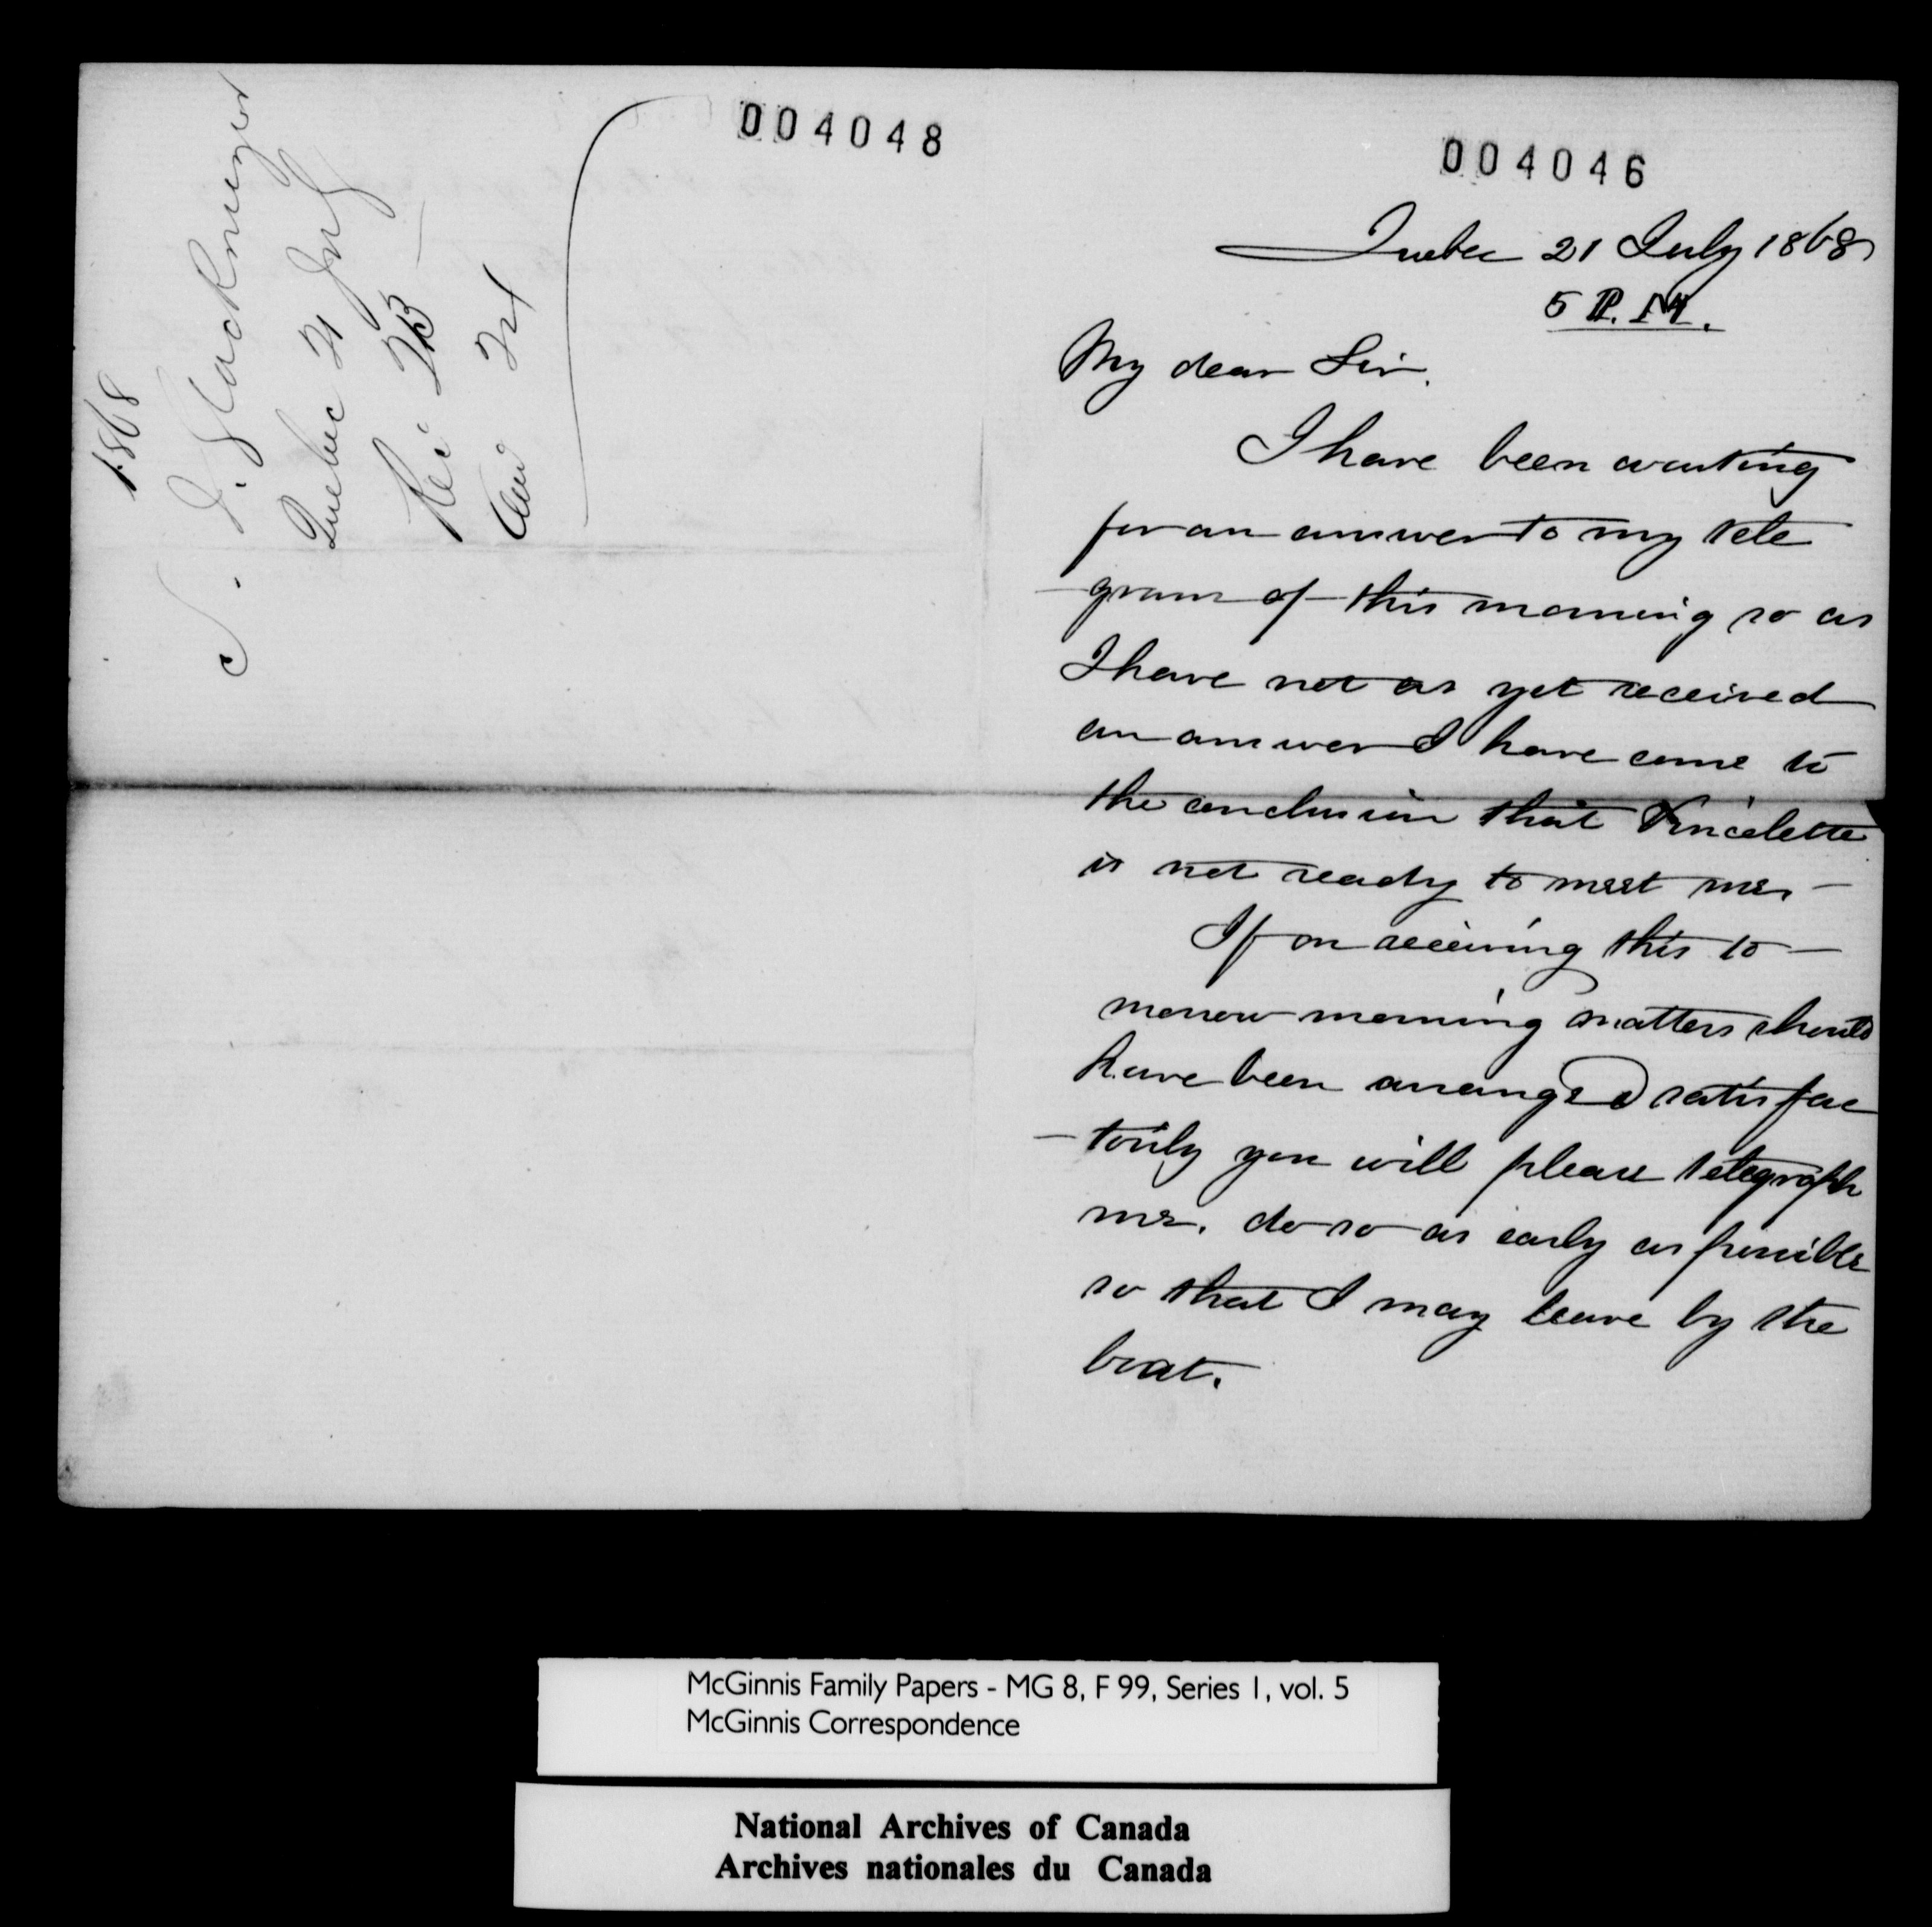 004048
1868
S. I. Glackmeyer
Quebec 21 July
Rec 23
Ans 24
004046
Quebec 21 July 1868
5 P.M.
My dear Sir.
I have been waiting
for an answer to my tele
-gram of this morning so as
I have not as yet received
an answer I have come to
the conclusion that Vincelette
is not ready to meet me. -
If on receiving this to-
morrow morning matters should
have been arranged satisfac
-torily you will please telegraph
me. do so as early as possible
so that I may leave by the
boat.
McGinnis Family Papers - MG 8, F 99, Series 1, vol. 5
McGinnis Correspondence
National Archives of Canada
Archives nationales du Canada